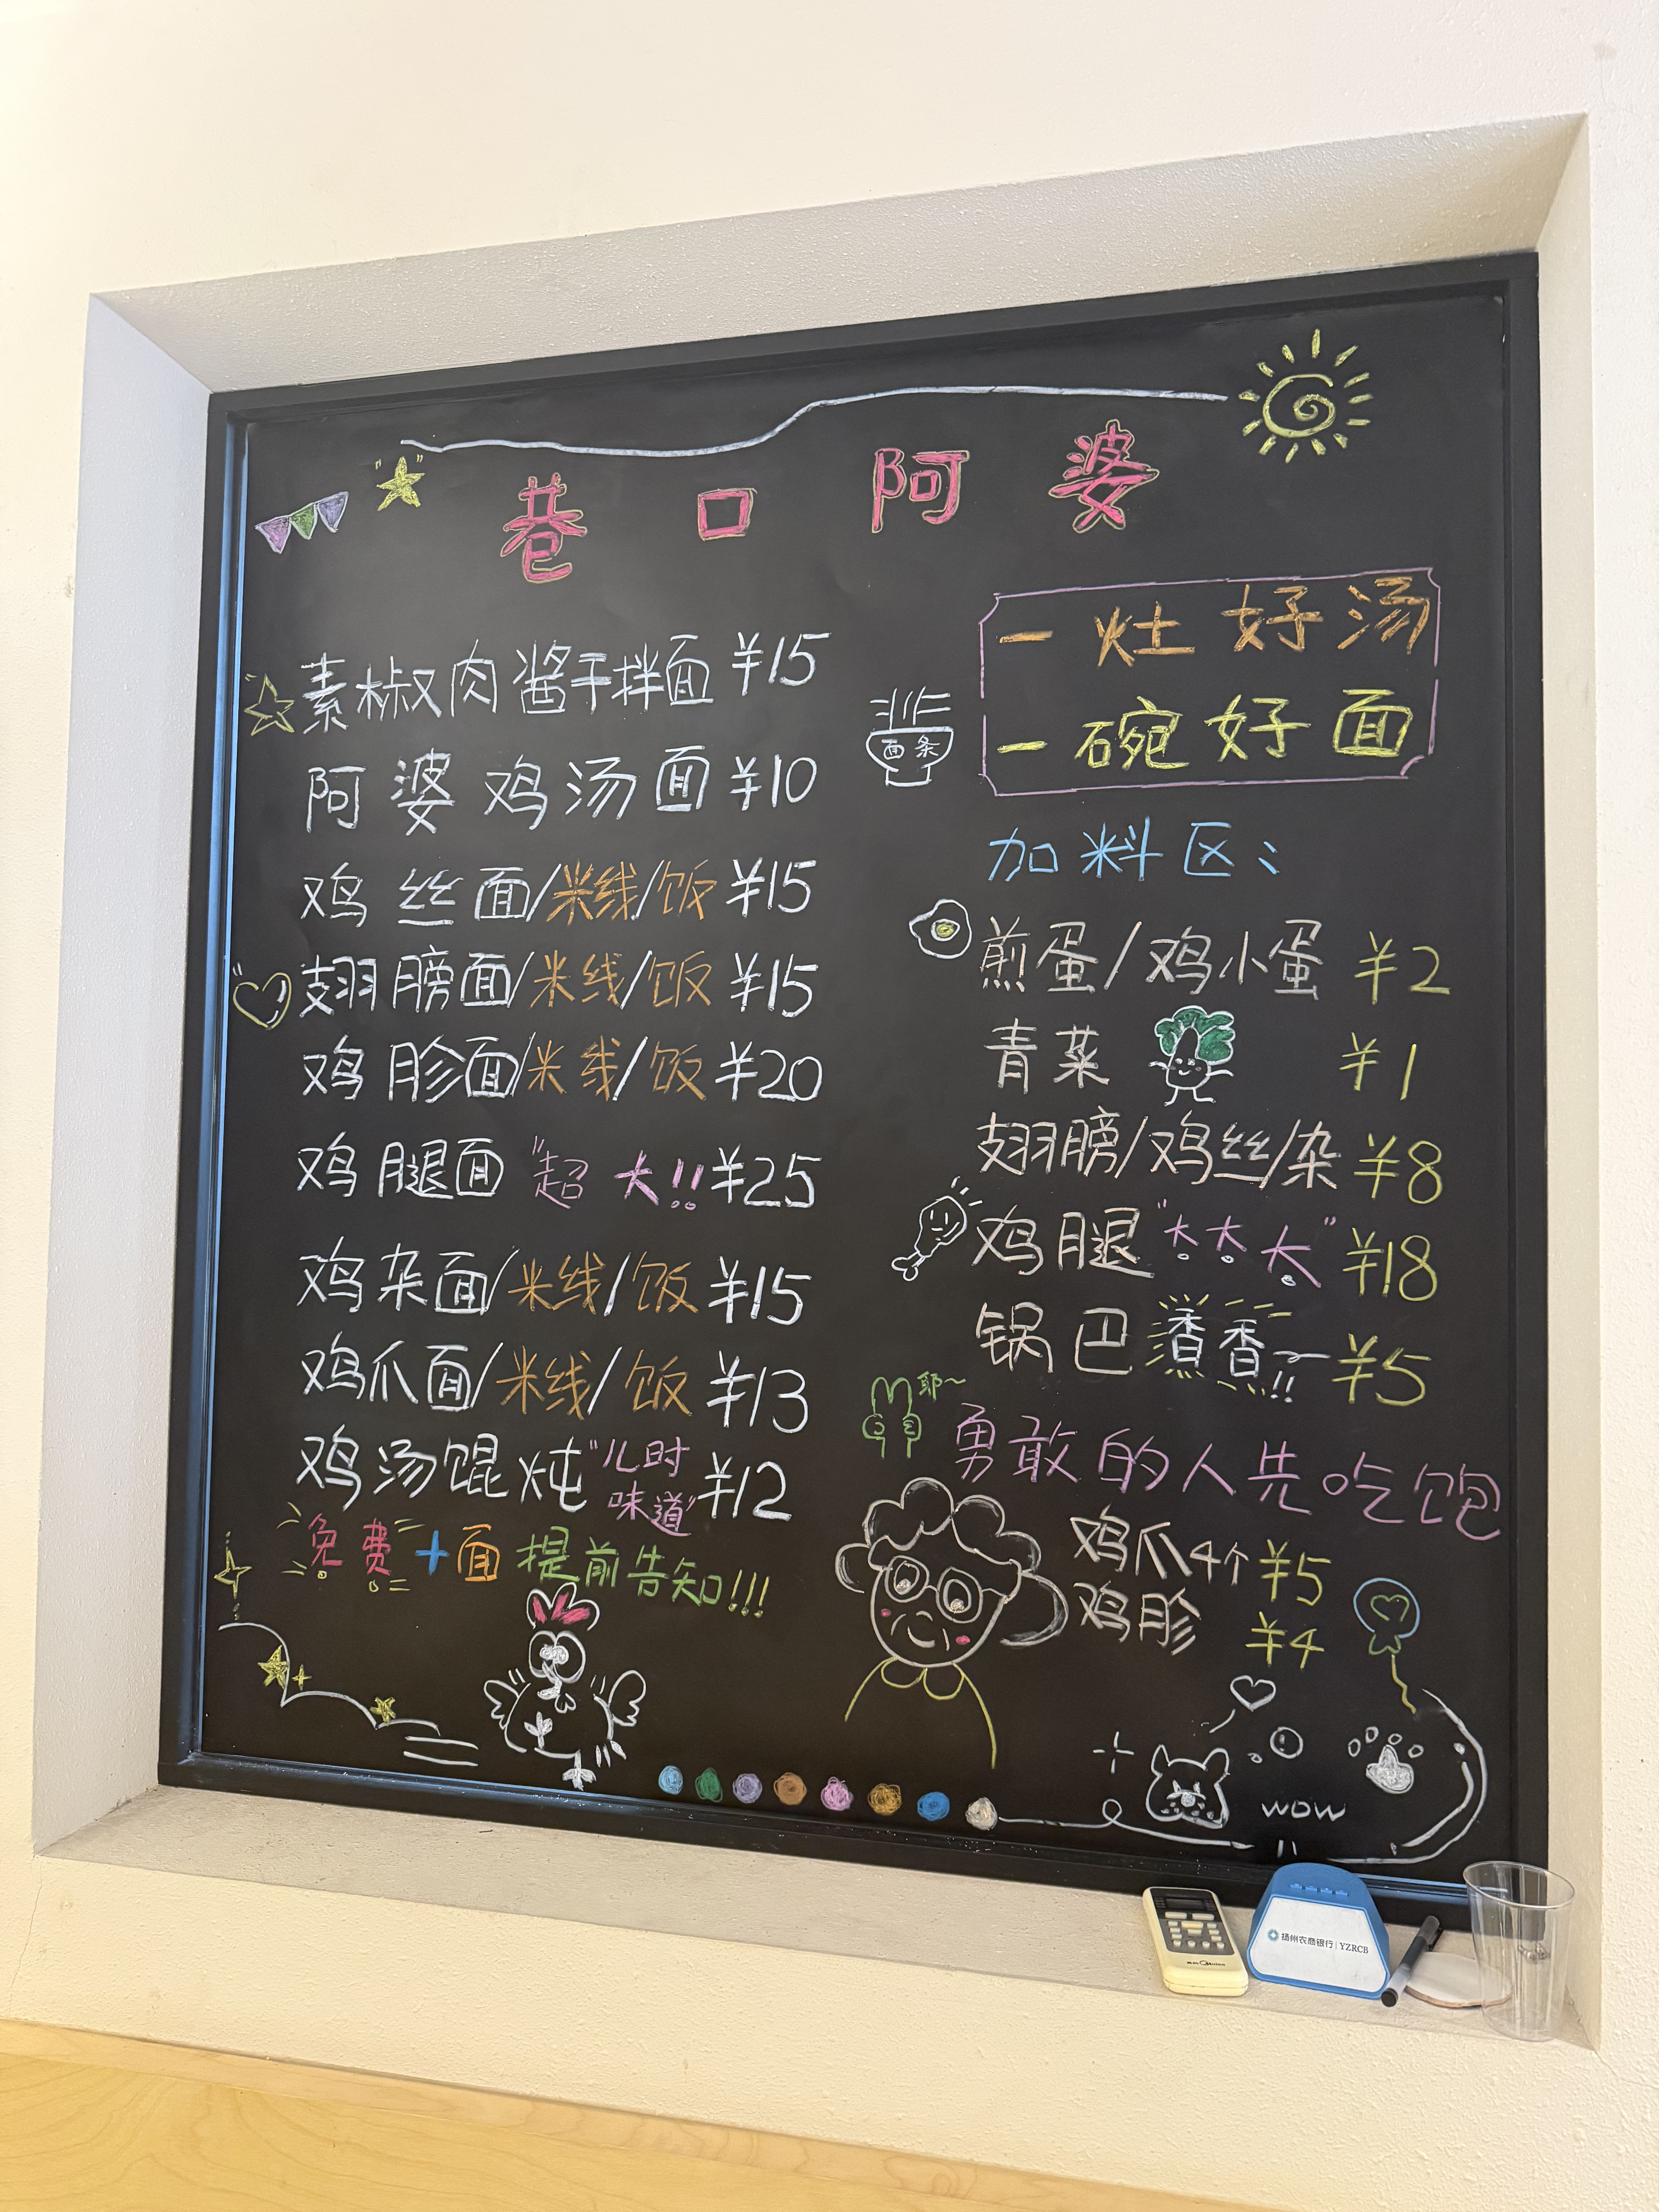 巷口阿婆
素椒肉酱干拌面 ¥15
阿婆鸡汤面 ¥10
鸡丝面/米线/饭 ¥15
翅膀面/米线/饭 ¥15
鸡胗面/米线/饭 ¥20
鸡腿面 "超大!! ¥25
鸡杂面/米线/饭 ¥15
鸡爪面/米线/饭 ¥13
鸡汤馄炖 "儿时味道" ¥12
免费+面 提前告知!!!
一灶好汤
一碗好面
面条
加料区:
煎蛋/鸡小蛋 ¥2
青菜 ¥1
翅膀/鸡丝/杂 ¥8
鸡腿 "大大大" ¥18
锅巴 香香!! ¥5
耶~
勇敢的人先吃饱
鸡爪4个 ¥5
鸡胗 ¥4
wow
扬州农商银行 | YZRCB
Midea